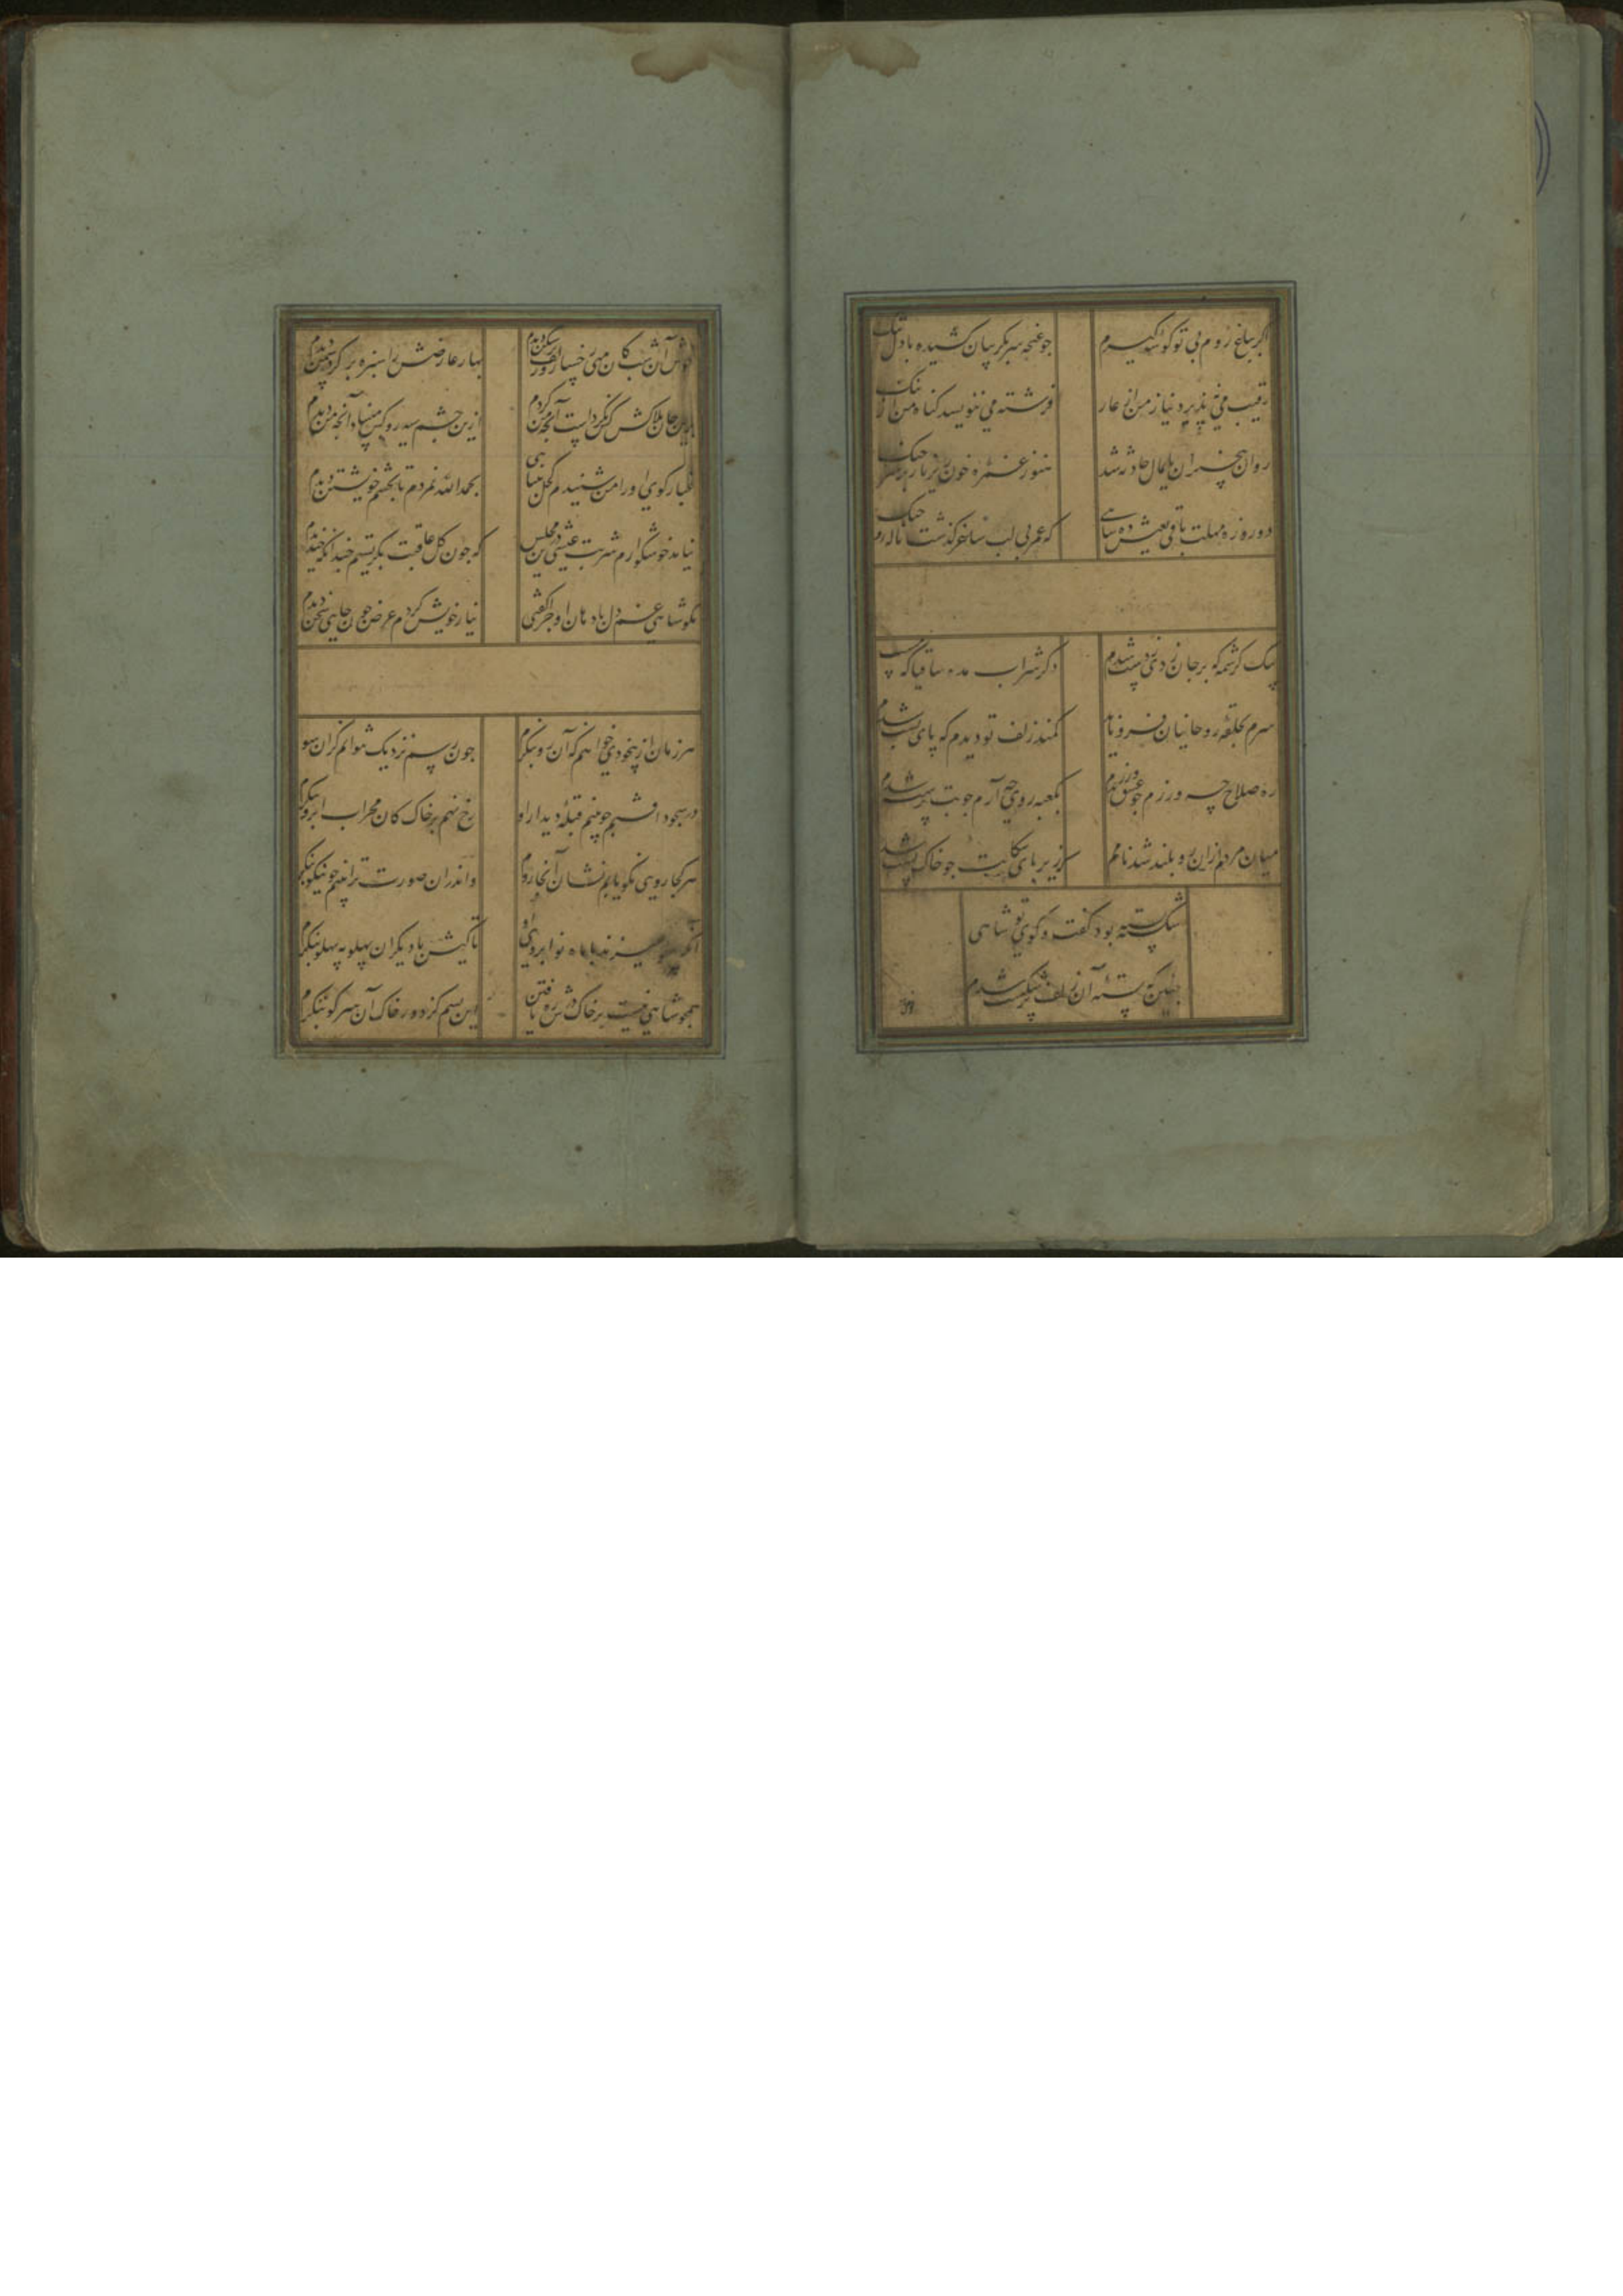 اگر بباغ روم بی تو گوشه گیرم
چو غنچه سر بگریبان کشیده با دل تنک
رقیب می نپذیرد نیاز من از عار
فرشته می ننویسد کناه من از ننک
روان هجران پایمال حادثه شد
هنوز غمزه خون ریز یار بر سر جنک
دو روزه مهلت باقی بعیش ده شاهی
که عمر بی لب ساغر کذشت ناله
بیک کرشمه که بر جان زدی ز دست شدم
دکر شراب مده ساقیا که مست
سرم بحلقه روحانیان فرو ناید
کمند زلف تو دیدم که پای بست شدم
ره صلاح چه ورزم چو عشق ورزیدم
بکعبه روی چه آرم چو بت پرست شدم
میان مردم ازان رو بلند شد نامم
که زیر پای سکانت چو خاک پست شدم
شکسته بود کفت و کوی تو شاهی
چنین که بسته آن زلف پر شکست شدم
خوش آن شبها کان مهی رخسار
بهار عارضش را سبزه بر کرد سمن دیدم
جان بلاکش کرد است آنچه من کردم
ازین چشم سیه رو کس مبیناد آنچه من دیدم
غبار کوی او را من شنیدم کحل بینایی
بحمد الله نمردم تا بچشم خویشتن دیدم
نیامد خوشکوارم شربت عیشی درین مجلس
که چون کل عاقبت بکریستم چندانکه خندیدم
بکو شاهی غم دل با دهان او چرا کفتی
نیاز خویش کردم عرض چون جای سخن دیدم
هر زمان از بیخودی خواهم که آن رو بنکرم
چون رسم نزدیک نتوانم کزان سو
در سجود افتم چو بینم قبله دیدار او
رخ نهم بر خاک کان محراب ابرو بنکرم
هر کجا رویی نکو یابم نشان آنجا روم
و اندران صورت ترا بینم چو نیکو بنکرم
ماه نو ابروی او
تا کیش با دیکران پهلو به پهلو بنکرم
همچو شاهی نیست بر خاک درش ره یافتن
این بسم کز دور خاک آن سر کو بنکرم